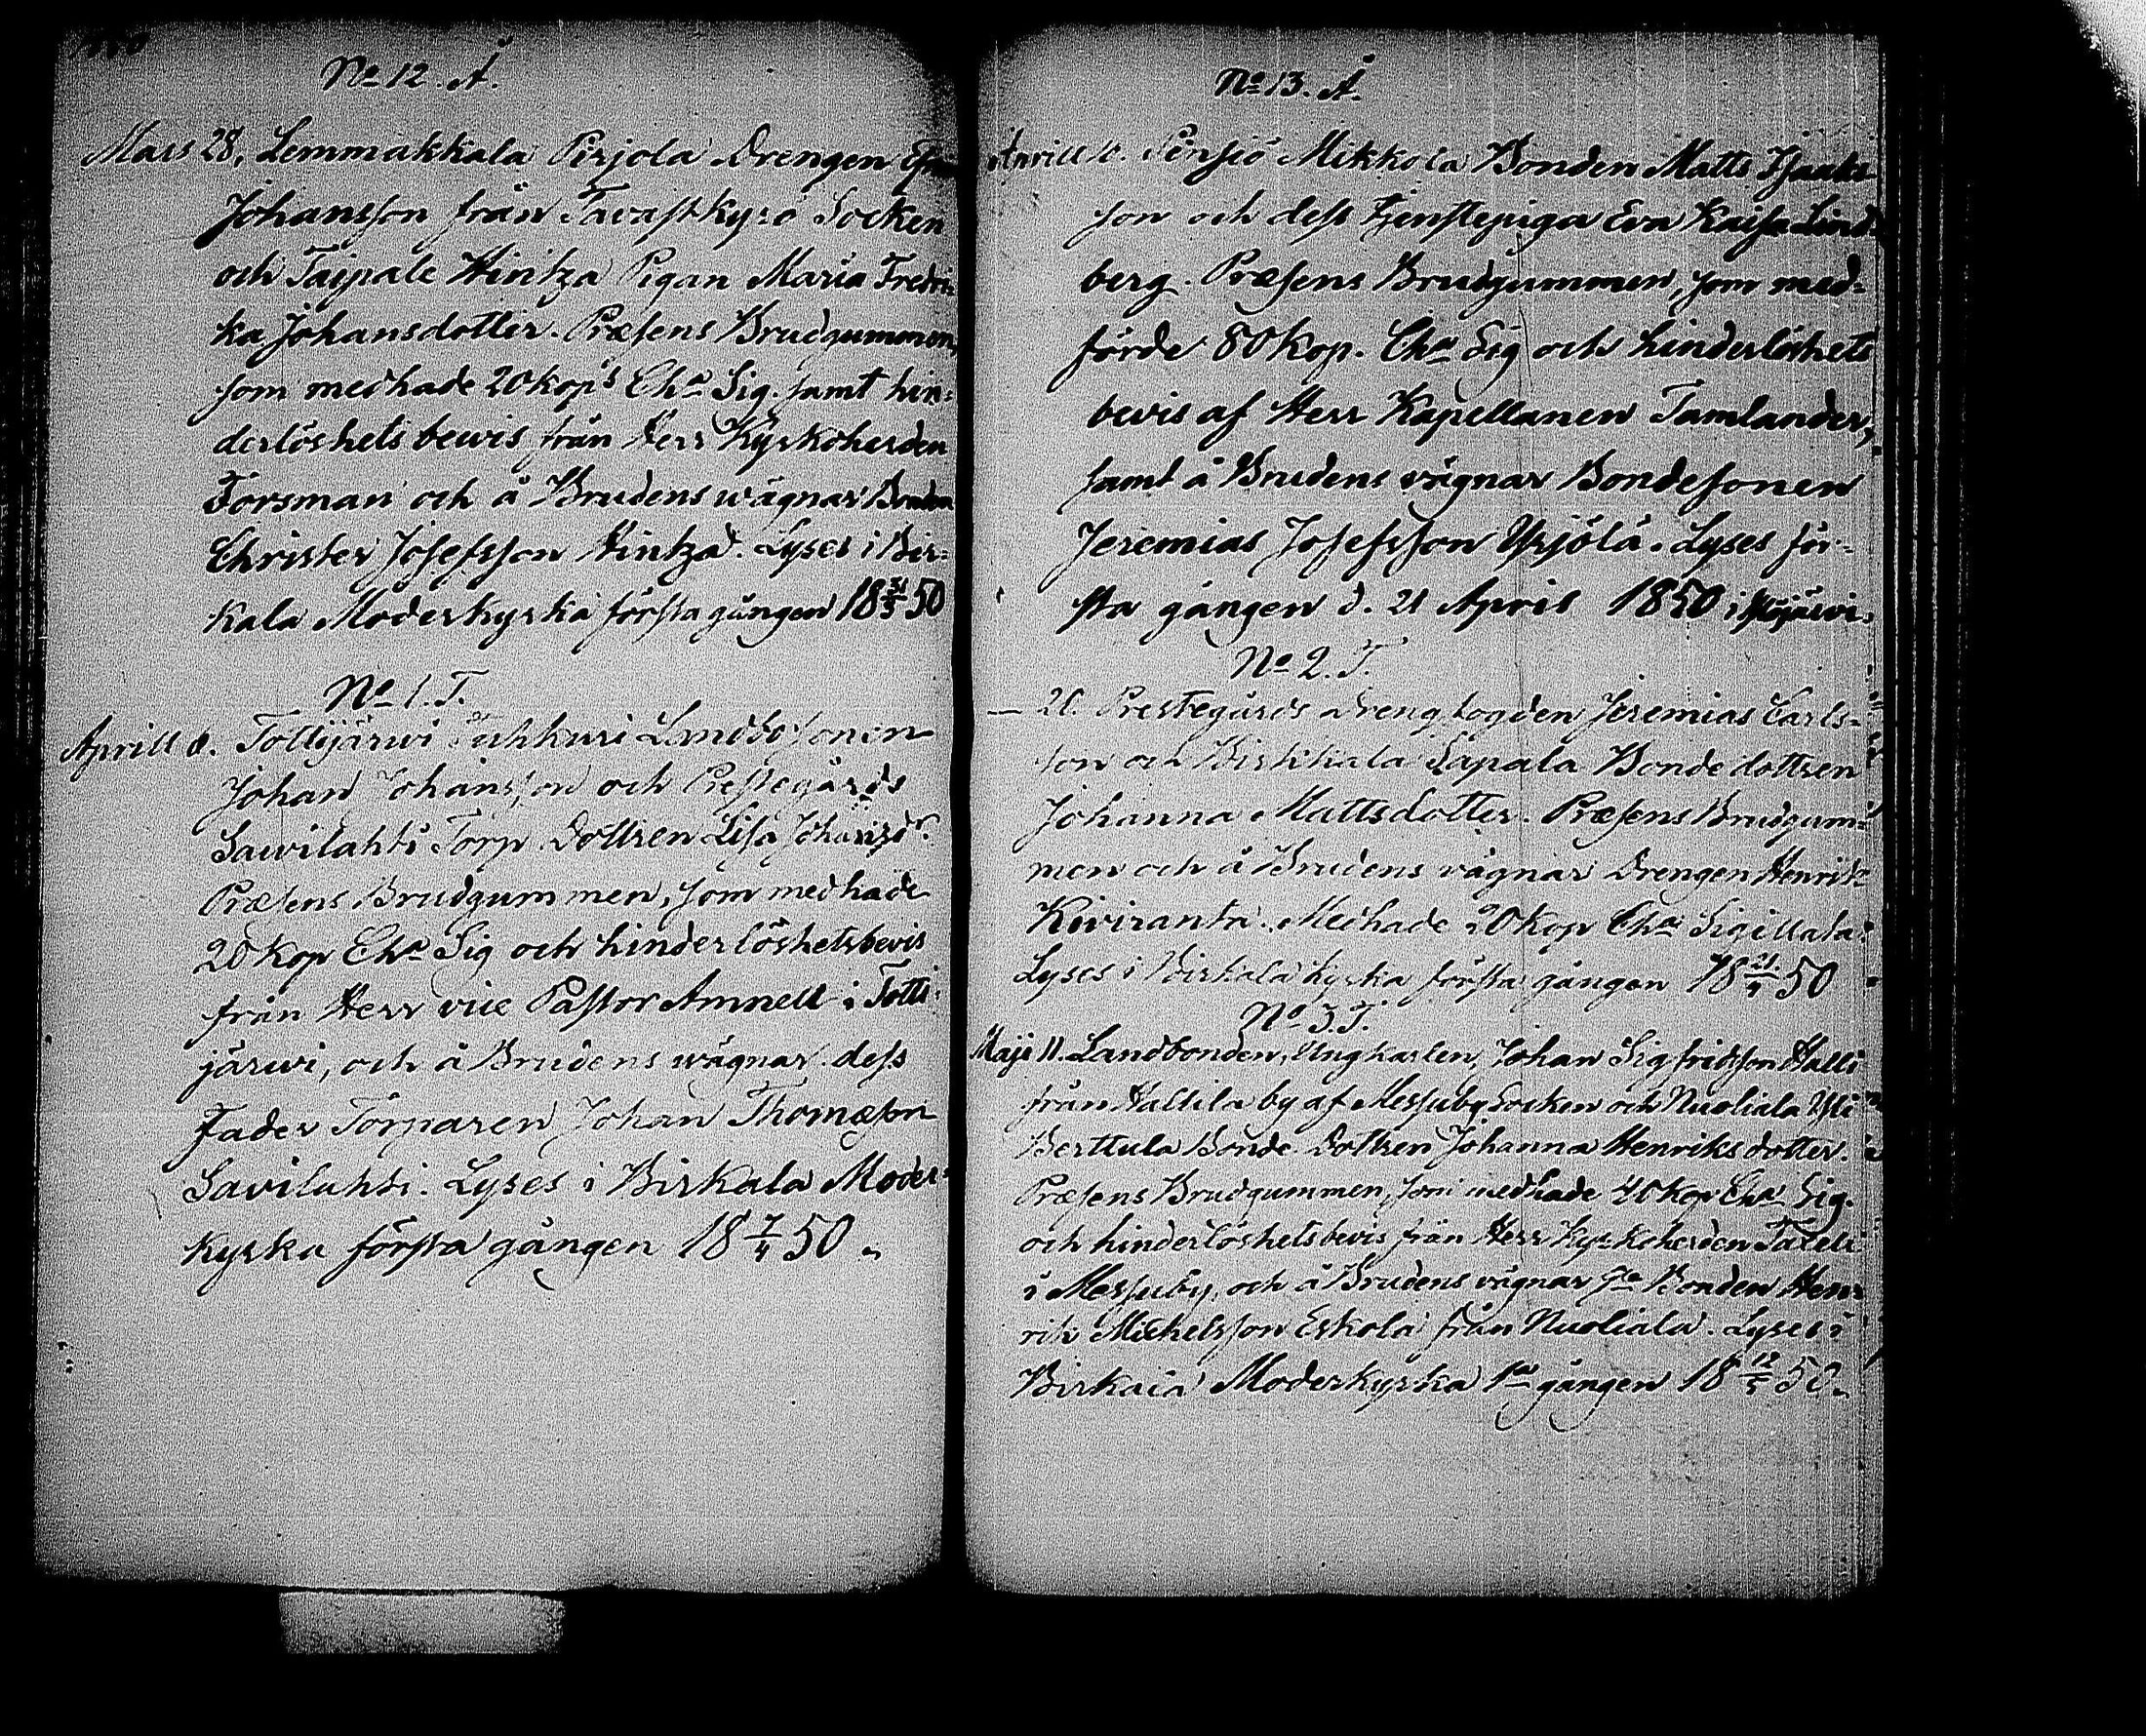 No 12. Å.
Mars 28. Lemmakkala Pirjola Drengen
Johansson från Tavastkyrö Socken
och Taipale Hintza Pigan Maria Fredri-
ka Johansdotter. Præsens Brudgummen,
som medhade 20 kop:s Cha Sig. samt hin-
derlöshets bewis från Herr Kyrkoherden
Forsman och å Brudens wägnar Bonden
Christer Josefsson Hintza. Lyses i Bir-
kala Moderkyrka första gången 18 31/3 50
No 1. T.
Aprill 6. Tottijärwi Tuhkuri Landbosonen
Johan Johansson och Prestegårds
Sawilahti Torp Dottren Lisa Johansdr.
Præsens Brudgummen, som medhade
20 kop Cha Sig och hinderlöshetsbevis
från Herr vice Pastor Amnell i Totti-
järwi, och å Brudens wägnar dess
Fader Torparen Johan Thomasson
Savilahti. Lyses i Birkala Moder-
kyrka första gången 18 7/4 50.
No 13. Å.
Aprill Pensiö Mikkola Bonden Matts Isaaks-
son och dess tjenstepiga Eva Kaisa Lind-
berg. Præsens Brudgummen, som med-
förde 80 kop. Cha Sig och hinderlöshets
bevis af Herr Kapellanen Tamlander,
samt å Brudens vägnar Bondesonen
Jeremias Josefsson Yrjölä. Lyses för-
sta gången d. 21 April 1850 i Ylöjärvi.
No 2. T.
— 20. Prestegårds drengfogden Jeremias Carls-
son och Birkkala Sapala Bonde dottren
Johanna Mattsdotter. Præsens Brudgum-
men och å Brudens vägnar Drengen Henrik
Kiviranta. Medhade 20 kop Cha Sigillata.
Lyses i Birkala kyrka första gången 18 21/4 50
No 3. T.
Maji 11. Landbonden, Ungkarlen, Johan Sigfridsson Halli
från Hallila by af Messuby Socken och Nuoliala Yli
Berttula Bonde Dottren Johanna Henriksdotter.
Præsens Brudgummen, som medhade 40 kop Cha Sig.
och hinderlöshetsbevis från Herr Kyrkoherden
i Messuby, och å Brudens vägnar Bonden Hen-
rik Michelsson Eskola från Nuoliala. Lyses i
Birkala Moderkyrka 1sta gången 18 12/5 50.